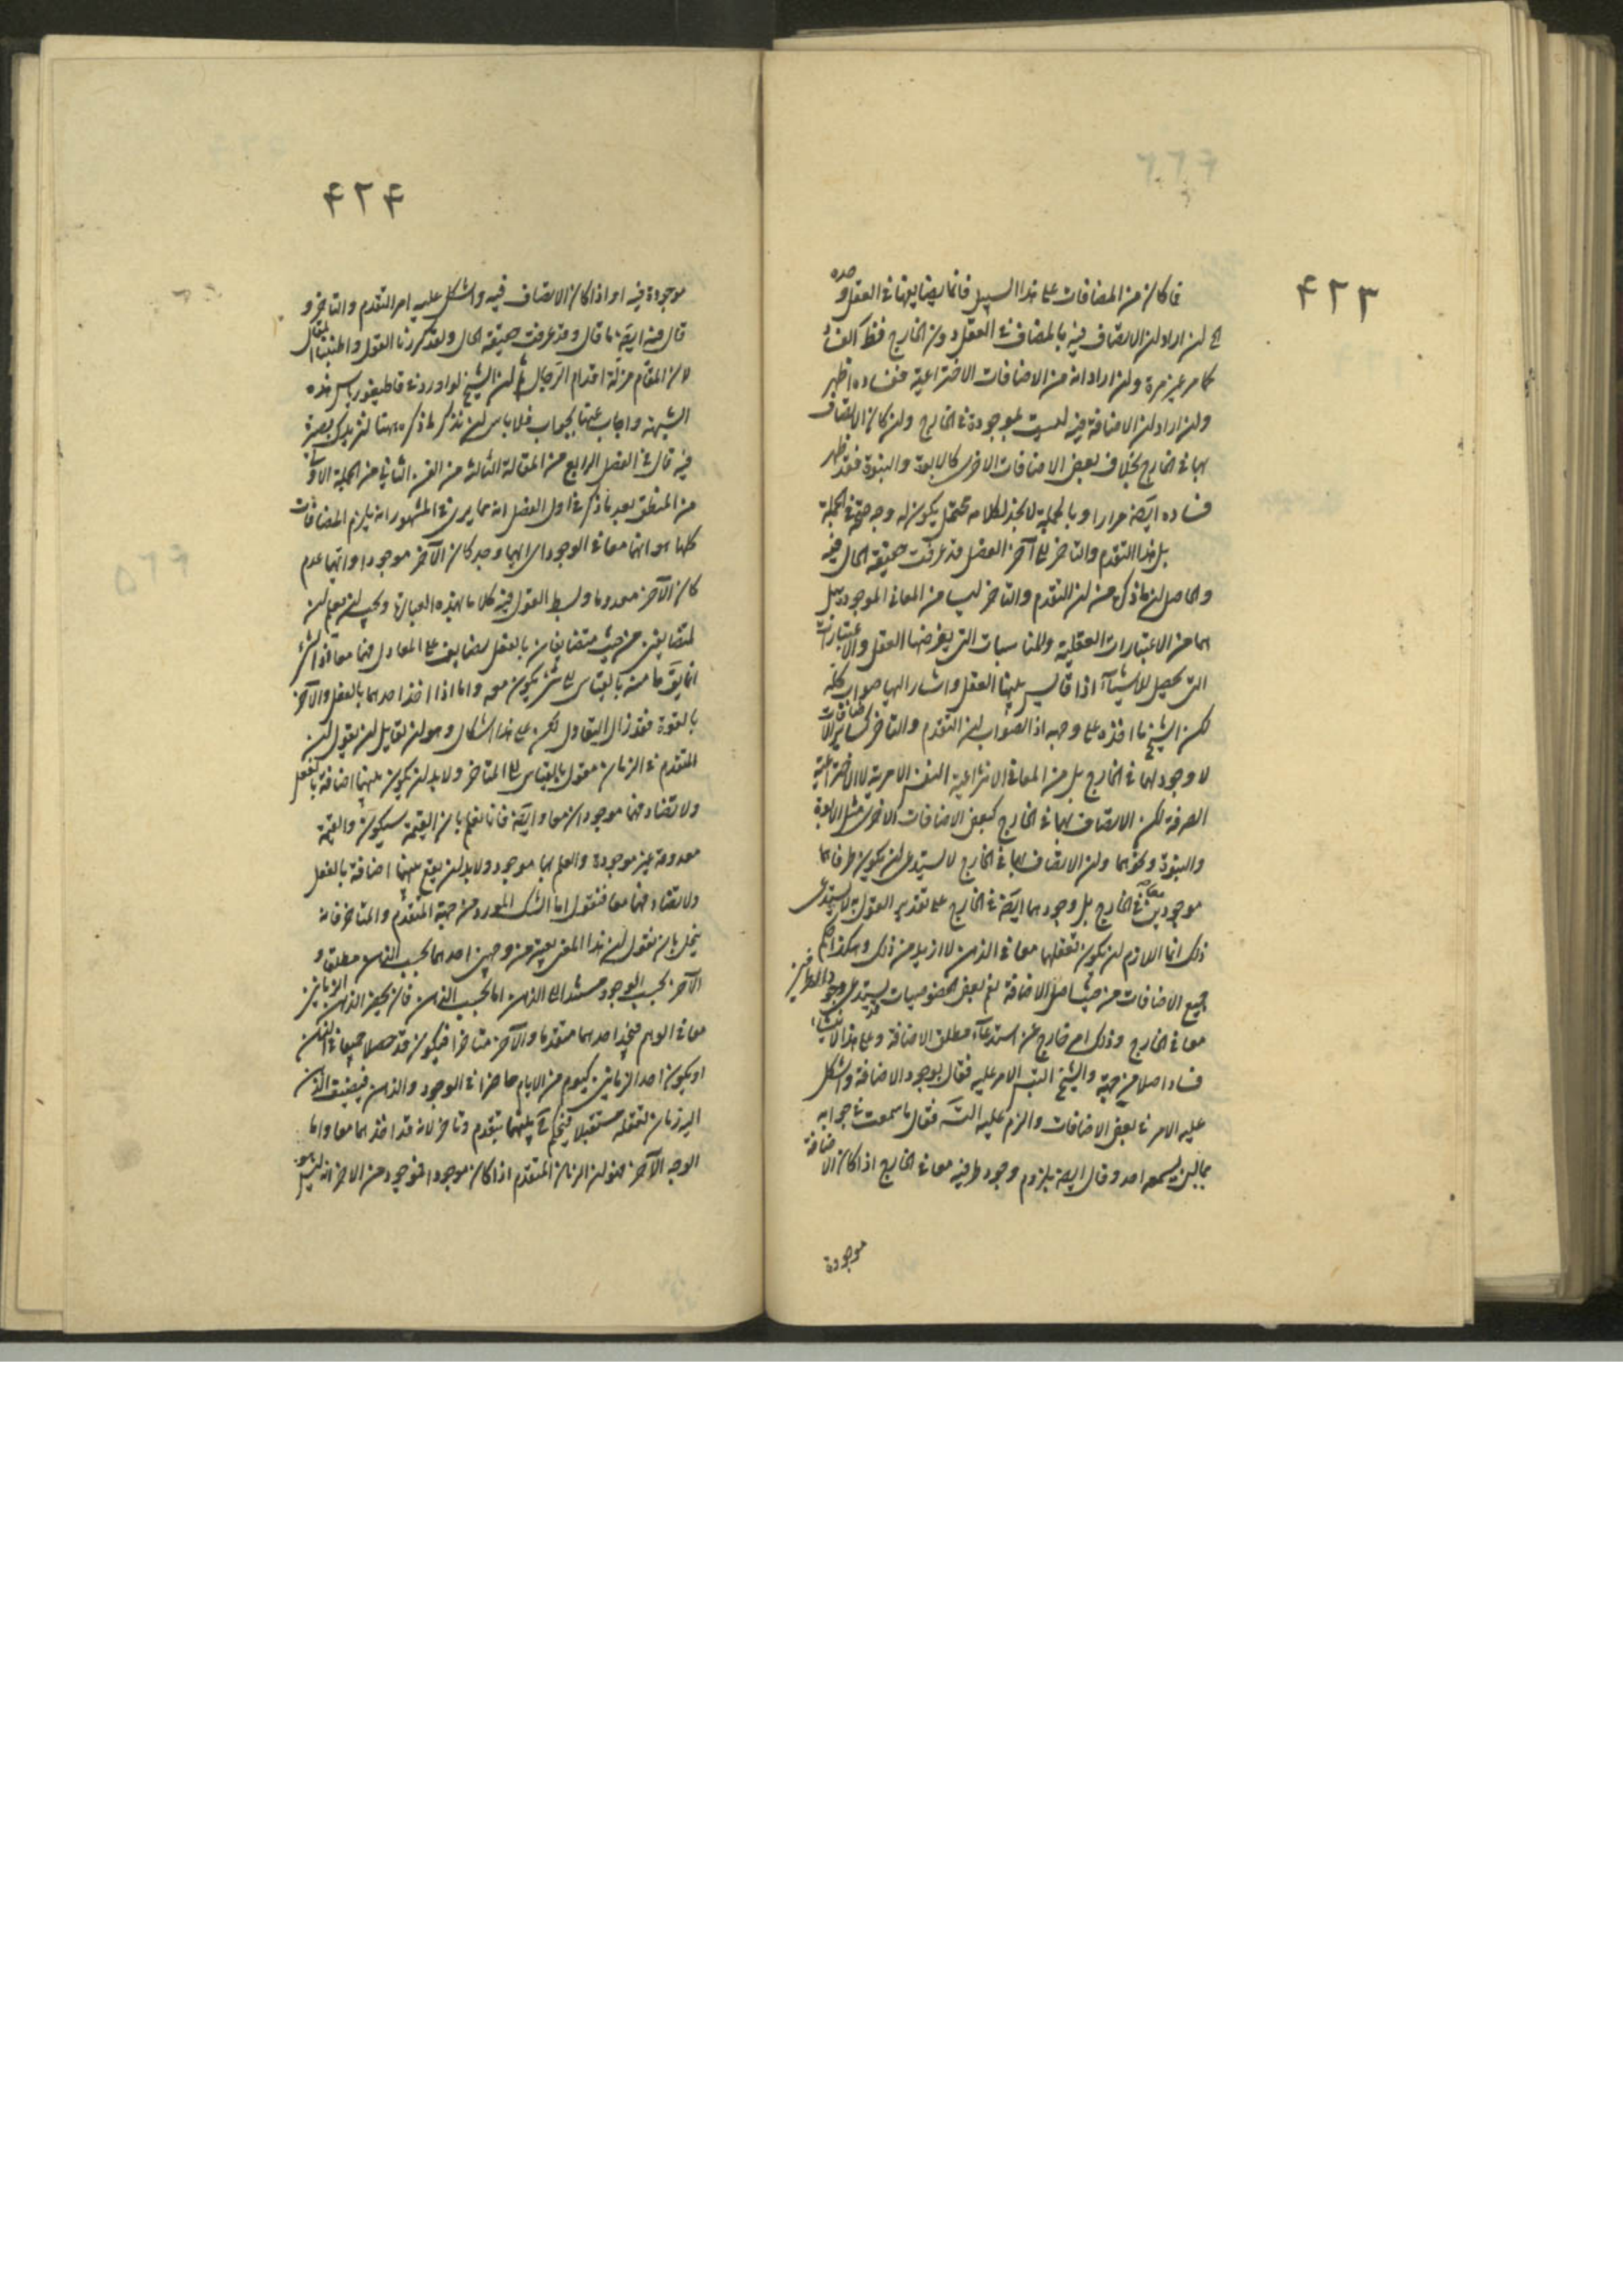 ۴۲۳
فما كان من المضافات على هذا السبيل فانما يضايفها في العقل وحده
ان اراد ان الاتصاف فيه بالمضاف في العقل دون الخارج فظاهر الفساد
كما مر غير مرة وان اراد انه من الاضافات الاختراعية ففساده اظهر
وان اراد ان الاضافة فيه ليست بموجودة في الخارج وان كان الاتصاف
بها في الخارج بخلاف بعض الاضافات الاخرى كالابوة والبنوة فقد ظهر
فساده ايضا مرارا وبالجملة لا نجد لكلامه محتمل يكون له وجه صحة في الجملة
بل هذا التقدم والتاخر الى آخر الفصل قد عرفت حقيقة الحال فيه
والحاصل ان ما ذكره من ان التقدم والتاخر ليسا من المعاني الموجودة بل
هما من الاعتبارات العقلية والمناسبات التي يفرضها العقل والاعتبارات
التي تحصل للاشياء اذا قايس بينها العقل واشار اليها صواب كله
لكن الشيخ ما اخذه على وجهه اذ الصواب ان التقدم والتاخر كساير الاضافات
لا وجود لهما في الخارج بل من المعاني الانتزاعية النفس الامرية لا الاختراعية
الصرفة لكن الاتصاف بهما في الخارج كبعض الاضافات الاخرى مثل الابوة
والبنوة ونحوهما وان الاتصاف بهما في الخارج لا يستدعي ان يكون طرفاهما
موجودين معا في الخارج بل وجودهما ايضا في الخارج على تقدير القول به لا يستدعي
ذلك انما اللازم ان يكون تعقلهما معا في الذهن لا ازيد من ذلك وهكذا حكم
جميع الاضافات من حيث اصل الاضافة نعم بعض الخصوصيات يستدعي وجود الطرفين
معا في الخارج وذلك امر خارج عن استدعاء مطلق الاضافة وعلى هذا لا
فساد اصلا من جهة والشيخ التبس الامر عليه فقال بوجود الاضافة واشكل
عليه الامر في بعض الاضافات والزم عليه فقال ما سمعت في جوابه
مما لم يسمعه احد وقال ايضا بلزوم وجود طرفيه معا في الخارج اذا كان الاضافة
موجودة
۴۲۴
موجودة فيه او اذا كان الاتصاف فيه واشكل عليه امر التقدم والتاخر و
قال فيه ايضا ما قال وقد عرفت حقيقة الحال ولقد كررنا القول واطنبنا المقال
لان المقام مزلة اقدام الرجال ثم ان الشيخ لو اورد في قاطيغورياس هذه
الشبهة واجاب عنها بجواب فلا باس ان نذكر ما ذكره ههنا لتزيدك بصيرة
فيه قال في الفصل الرابع من المقالة الثالثة من الفن الثاني من الجملة الاولى
من المنطق بعد ما ذكر في اول الفصل انه مما يرى في المشهور انه يلزم المضافات
كلها هو انهما معا في الوجود اي ايهما وجد كان الآخر موجودا وايهما عدم
كان الآخر معدوما وبسط القول فيه كلاما بهذه العبارة ويجب ان يعلم ان
المتضايفين من حيث متضايفان بالفعل يضايف على المعادل فهما معا اذ الشيء
انما يق ماهيته بالقياس الى شيء يكون معه واما اذا اخذ احدهما بالفعل والآخر
بالقوة فقد زال التعادل لكن على هذا اشكال وهو ان لقايل ان يقول ان
المتقدم في الزمان مقول بالقياس الى المتاخر ولا بد ان يكون بينهما اضافة بالفعل
ولا تضاد فهما موجودان معا وايضا فانا نعلم بان القيمة سيكون والقيمة
معدومة غير موجودة والعلم بها موجود ولا بد ان يقع بينهما اضافة بالفعل
ولا تضاد فهما معا فنقول اما الشك المورد من جهة المتقدم والمتاخر فانه
ينحل بان نقول ان هذا المعنى يعتبر من وجهين احدهما بحسب الذهن مطلقا و
الآخر بحسب الوجود مستندا الى الذهن اما بحسب الذهن فان يحضر الذهن الزمانين
معا في الوهم فيجد احدهما متقدما والآخر متاخرا فيكون قد حصلا جميعا في الذهن
او يكون احد الزمانين كيوم من الايام حاضرا في الوجود والذهن فيضيف الذهن
اليه زمان تعقله مستقبلا فيحكم بينهما بتقدم وتاخر لانه قد اخذهما معا واما
الوجه الآخر فهو ان الزمان المتقدم اذا كان موجودا فموجود من الاخر انه ليس هو